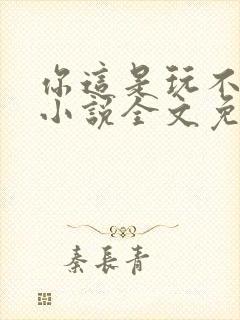 你這是玩不
小說全文免
秦長青